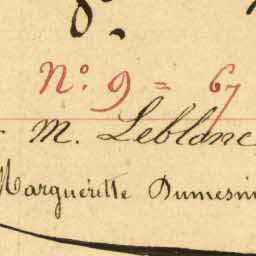 N.º 9 = 67
M. Leblanc
Margueritte Dumesni